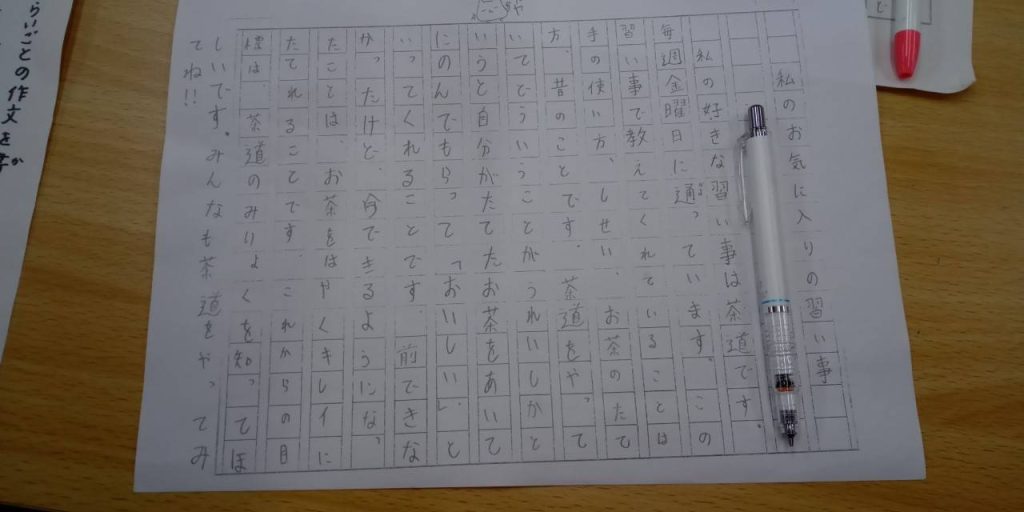 私のお気に入りの習い事
私の好きな習い事は茶道です。
毎週金曜日に通っています。この
習い事で教えてくれていることは
手の使い方、しせい、お茶のたて
方、昔のことです。茶道をやって
いてどういうことがうれしいかと
いうと自分がたてたお茶をあいて
にのんでもらって「おいしい」と
いってくれることです。前できな
かったけど、今できるようになっ
たことは、お茶をはやくキレイに
たてれることです。これからの目
標は、茶道のみりょくを知ってほ
しいです。みんなも茶道をやってみ
てね!!
らいごとの作文を